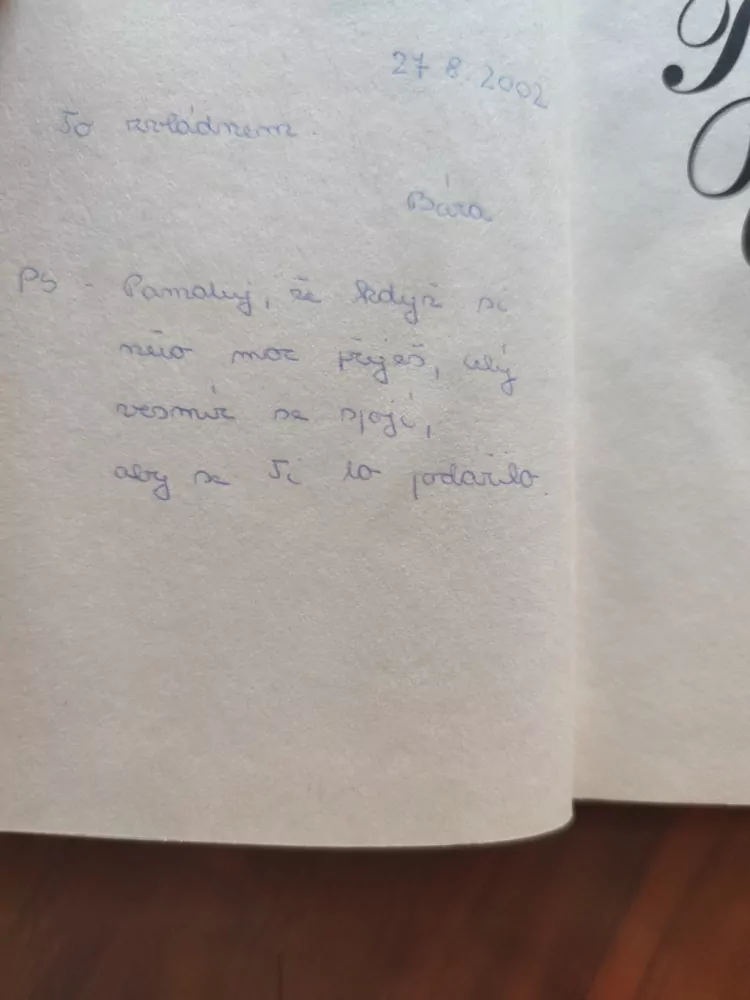 27 8. 2002
To zvládnem.
Bára
PS - Pamatuj, že když si
něco moc přeješ, celý
vesmír se spojí,
aby se Ti to podařilo.